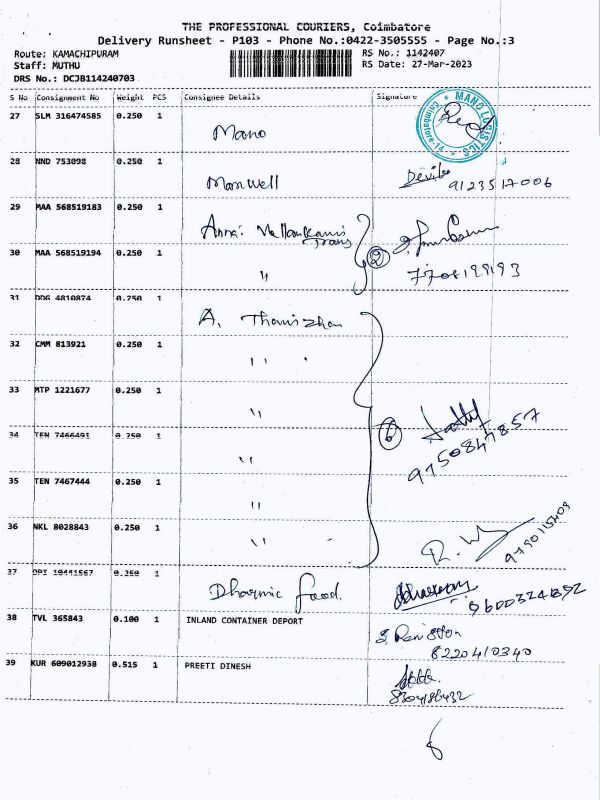 THE PROFESSIONAL COURIERS, Coimbatore
Delivery Runsheet - P103 - Phone No.:0422-3505555 - Page No.:3
Route: KAMACHIPURAM RS No.: 1142407
Staff: MUTHU RS Date: 27-Mar-2023
DRS No.: DCJB114240703
S No Consignment No Weight PCS Consignee Details Signature
27 SLM 316474585 0.250 1 Mano
MANO LOGISTICS
Coimbatore-14
28 NND 753098 0.250 1 Manwell 9123517006
29 MAA 568519183 0.250 1 Annai Trans
30 MAA 568519194 0.250 1 〃 2
31 DDG 4810874 0.250 1 A. Thamizhan
32 CMM 813921 0.250 1 〃
33 MTP 1221677 0.250 1 〃
34 TEN 7466491 0.250 1 〃 6
35 TEN 7467444 0.250 1 〃 9750847857
36 NKL 8028843 0.250 1 〃
37 0.250 1 Dharmic Food. 9600324892
38 TVL 365843 0.100 1 INLAND CONTAINER DEPORT
8220410340
39 KUR 609012938 0.515 1 PREETI DINESH